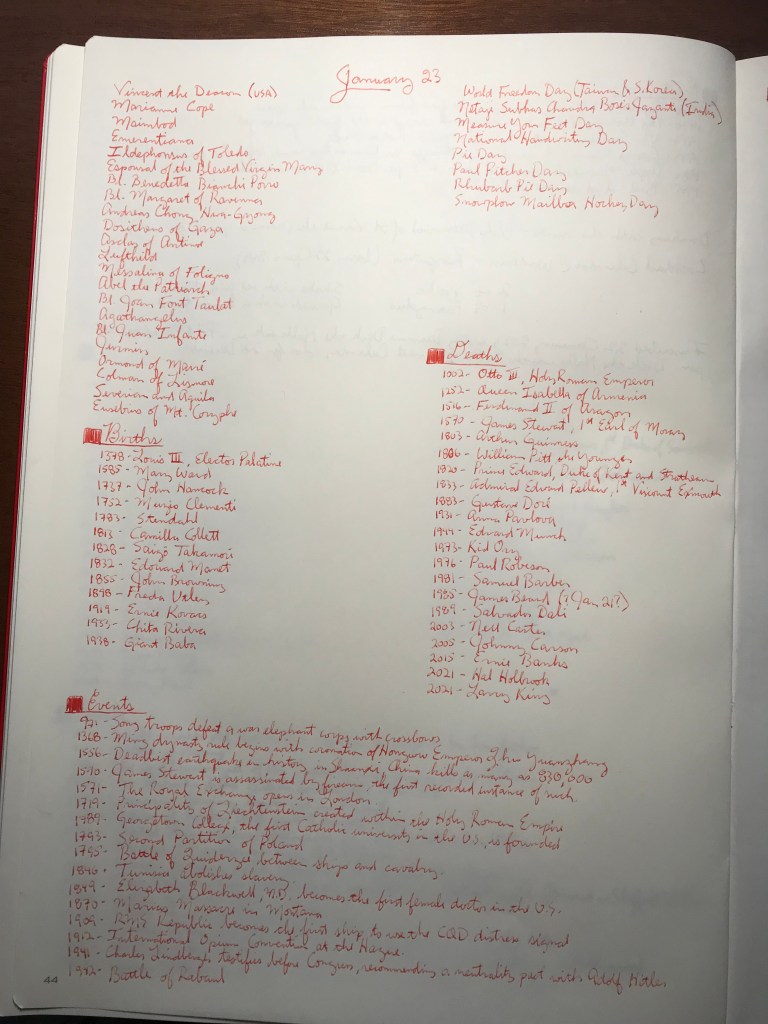 January 23
Vincent the Deacon (USA)
Marianne Cope
Maimbod
Emerentiana
Ildephonsus of Toledo
Espousal of the Blessed Virgin Mary
Bl. Benedetta Bianchi Porro
Bl. Margaret of Ravenna
Andreas Chong Hwa-Gyong
Dositheus of Gaza
Asclas of Antinoe
Lufthild
Messalina of Foligno
Abel the Patriarch
Bl Joan Font Taulat
Agathangelus
Bl Juan Infante
Jurmin
Ormond of Mairé
Colman of Lismore
Severian and Aquila
Eusebius of Mt. Coryphe
World Freedom Day (Taiwan & S. Korea)
Netaji Subhas Chandra Bose's Jayanti (India)
Measure Your Feet Day
National Handwriting Day
Pie Day
Paul Pitcher Day
Rhubarb Pie Day
Snowplow Mailbox Hockey Day
Births
1378- Louis III, Elector Palatine
1585- Mary Ward
1737- John Hancock
1752- Muzio Clementi
1783- Stendahl
1813- Camilla Collett
1828- Saigō Takamori
1832- Edouard Manet
1855- John Browning
1898- Freda Utley
1919- Ernie Kovacs
1933- Chita Rivera
1938- Giant Baba
Deaths
1002- Otto III, Holy Roman Emperor
1252- Queen Isabella of Armenia
1516- Ferdinand II of Aragon
1570- James Stewart, 1st Earl of Moray
1803- Arthur Guinness
1806- William Pitt the Younger
1820- Prince Edward, Duke of Kent and Strathearn
1833- Admiral Edward Pellew, 1st Viscount Exmouth
1883- Gustave Doré
1931- Anna Pavlova
1944- Edvard Munch
1973- Kid Ory
1976- Paul Robeson
1981- Samuel Barber
1985- James Beard (? Jan 21?)
1989- Salvador Dali
2003- Nell Carter
2005- Johnny Carson
2015- Ernie Banks
2021- Hal Holbrook
2021- Larry King
Events
971- Song troops defeat a war elephant corps with crossbows
1368- Ming dynasty rule begins with coronation of Hongwu Emperor Zhu Yuanzhang
1556- Deadliest earthquake in history in Shaanxi, China kills as many as 830,000
1570- James Stewart is assassinated by firearm, the first recorded instance of such.
1571- The Royal Exchange opens in London.
1719- Principality of Liechtenstein created within the Holy Roman Empire
1789- Georgetown College, the first Catholic university in the U.S., is founded
1793- Second Partition of Poland
1795- Battle of Zuiderzee between ships and cavalry.
1846- Tunisia abolishes slavery
1849- Elizabeth Blackwell, M.D. becomes the first female doctor in the U.S.
1870- Marias Massacre in Montana
1909- RMS Republic becomes the first ship to use the CQD distress signal
1912- International Opium Convention at the Hague.
1941- Charles Lindbergh testifies before Congress, recommending a neutrality pact with Adolf Hitler
1942- Battle of Rabaul
44